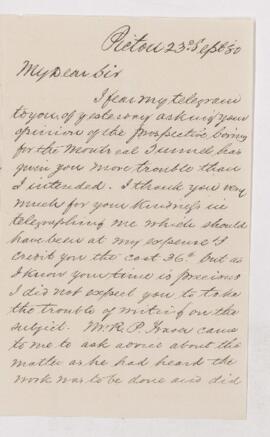 Pictou 23d Sept 80
My Dear Sir
I fear my telegram
to you of yesterday asking your
opinion of the prospective boring
for the Montreal Tunnel has
given you more trouble than
I intended. I thank you very
much for your kindness in
telegraphing me which should
have been at my expense & I
credit you the cost 36c but as
I know your time is precious
I did not expect you to take
the trouble of writing on the
subject. Mr R. P. Fraser came
to me to ask advice about the
matter as he had heard the
work was to be done and did